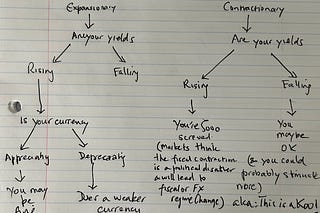 Expansionary
Contractionary
Are your yields
Are your yields
Rising
Falling
Rising
Falling
Is your currency
You're Sooo
screwed
(markets think
the fiscal contraction
is a political disaster
& will lead to
fiscal or FX
regime change)
You
maybe
OK
(& you could
probably stimulate
more)
aka: This is a Kool
Appreciating
Depreciating
You may
be
Does a weaker
currency